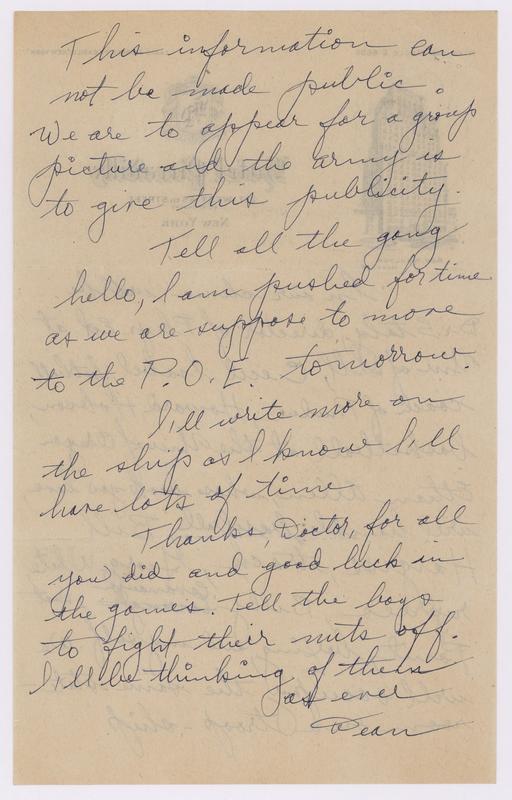 This information can
not be made public.
We are to appear for a group
picture and the army is
to give this publicity.
Tell all the gang
hello, I am pushed for time
as we are suppose to move
to the P.O.E. tomorrow.
I'll write more on
the ship as I know I'll
have lots of time
Thanks, Doctor, for all
you did and good luck in
the games. Tell the boys
to fight their nuts off.
I'll be thinking of them
as ever
Dean